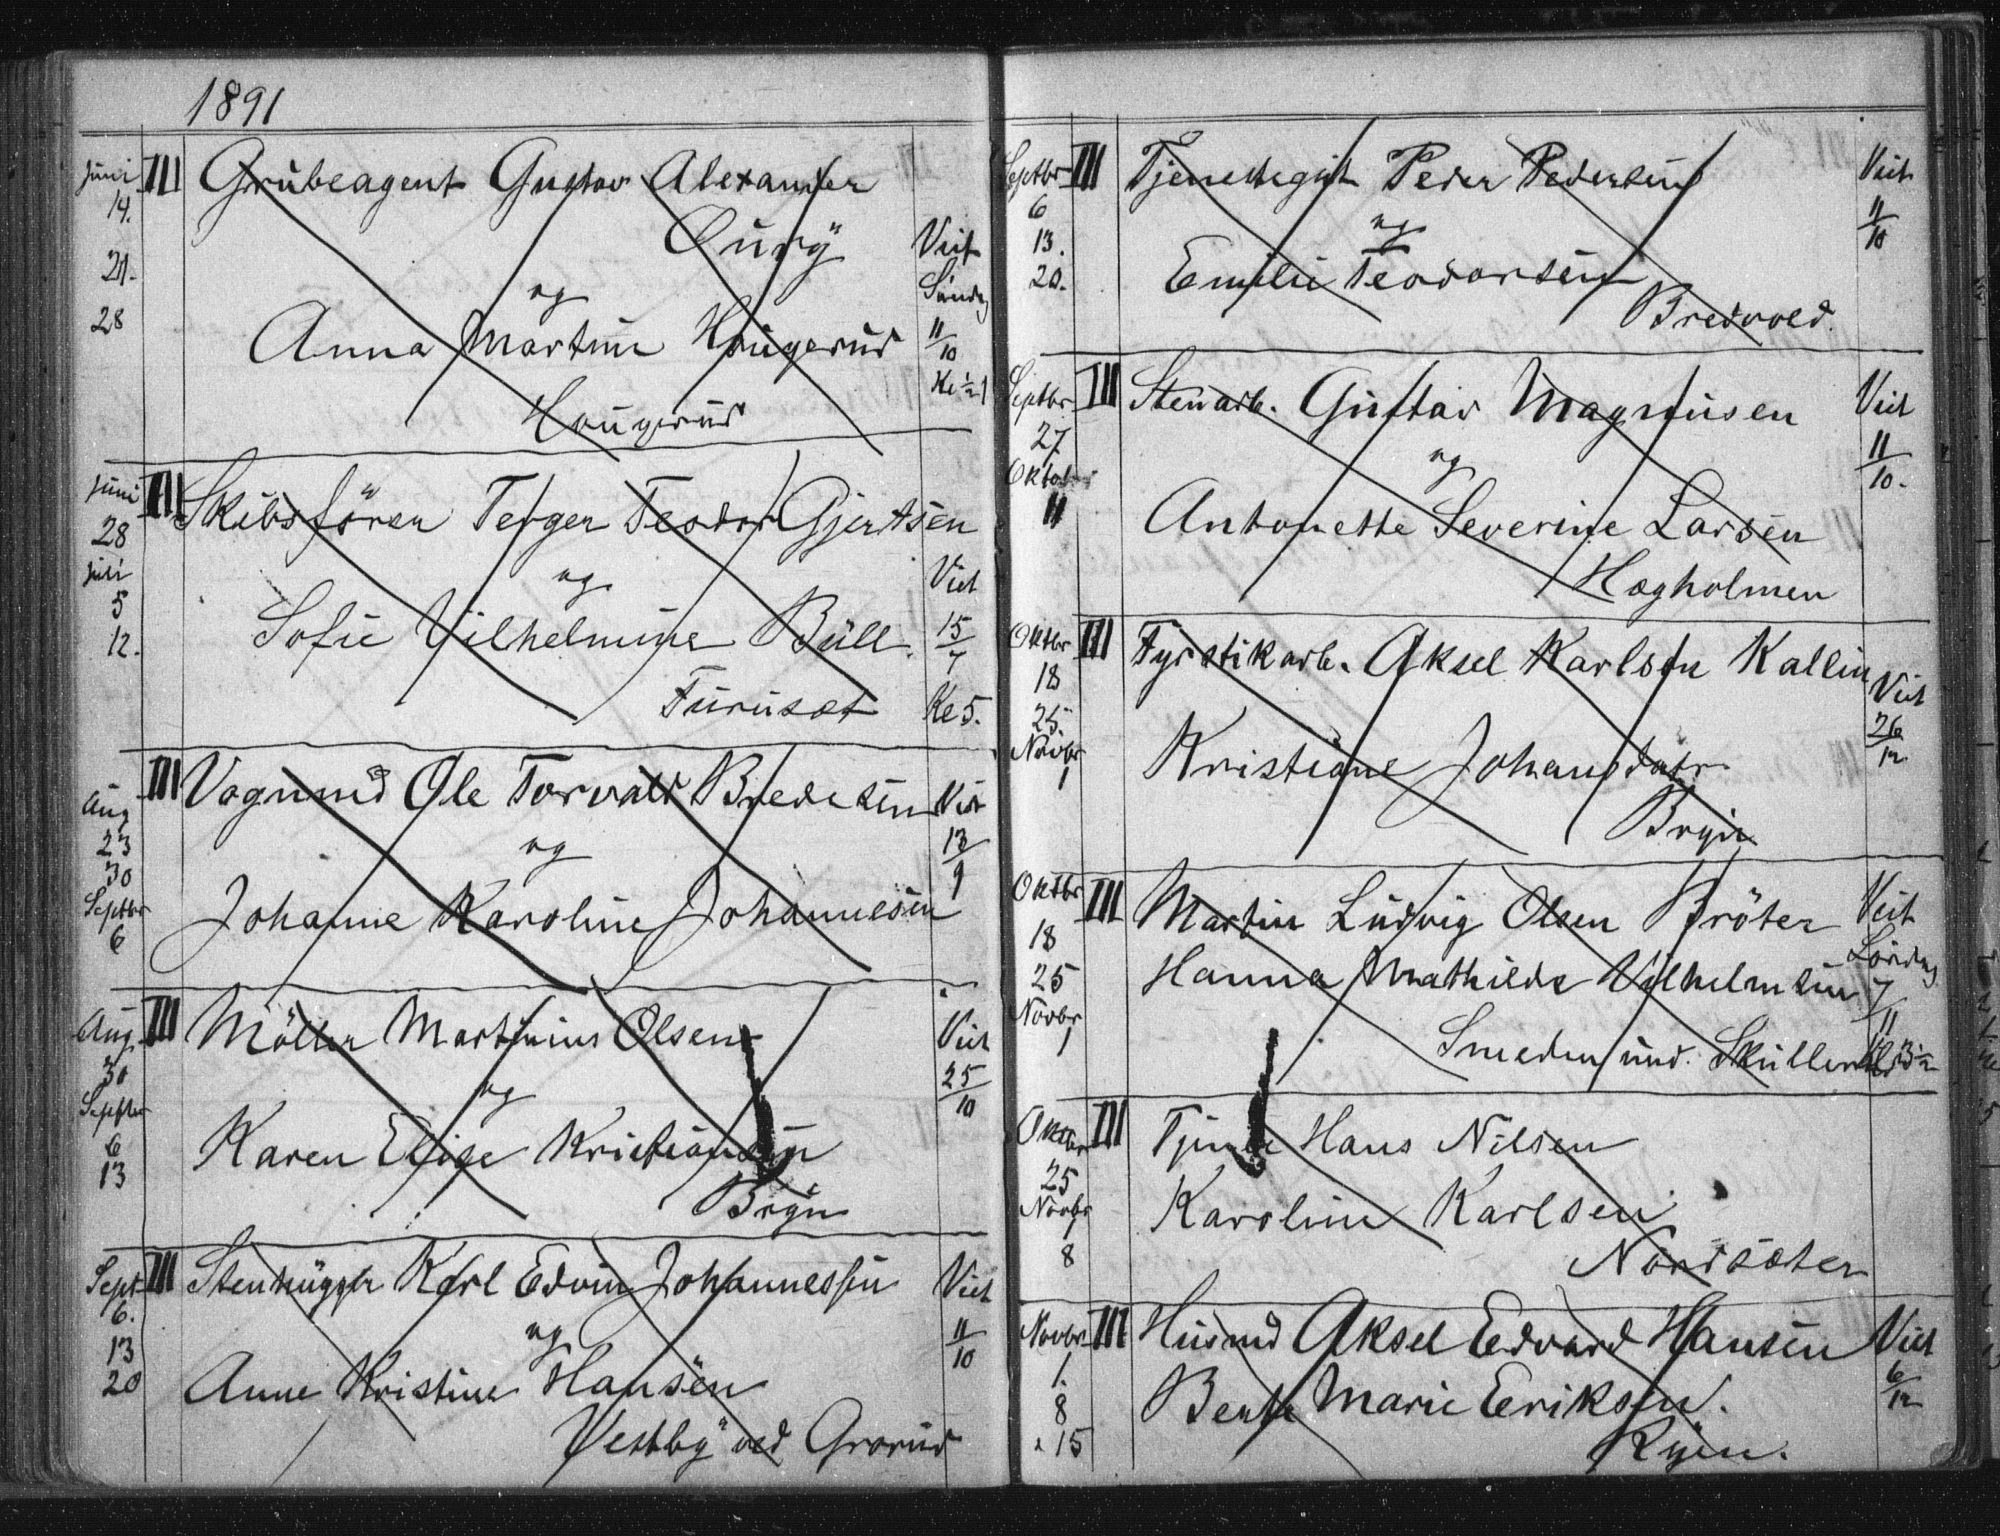 1891
Juni 14. 21. 28 III Grubeagent Gustav Alexander
Viet Søndag 11/10 Kl ½ 1
og
Anna Martine Hougerud
Hougerud
Juni 28 Juli 5 12. III Skibsfören Terger Teodor Gjertsen
og
Viet 15/7 Kl 5.
Sofie Vilhelmine Büll.
Furuset
Aug 23 30 Septbr 6 III Vognmd Ole Torvald Bredesen Viet 13/9
og
Johanne Karoline Johannesen
Aug. 30 Septbr 6 13 III Möller Martinius Olsen Viet 25/10
og
Karen Elise Kristiansen
Bryn
Sept 6. 13 20 III Stenhugger Karl Edvin Johannessen Viet 11/10
og
Anne Kristine Hansen
Vestby ved Grorud
Septbr 6 13. 20. III Tjenestegut Peder Pedersen Viet 11/10
og
Emilie Teodorsen
Bredvold.
Septbr 27 Oktobr 11 III Stenarb. Gustav Magnusen Viet 11/10.
og
Antonette Severine Larsen
Hægholmen
Oktbr 18 25 Novbr 1 III Fyrstikarb. Aksel Karlsen Kallin Viet 26/12
Kristiane Johansdatr
Bryn
Oktbr 18 25 Novbr 1 III Martin Ludvig Olsen Bröter Viet Lørdag 7/11 Kl 3½
Hanna Mathilde Vilhelmsen
Smeden und. Skullerud
Oktbr 25 Novbr 1 8 III Tjen Hans Nilsen
Karoline Karlsen
Nordsæter
Novbr 1. 8 15 III Husmd Aksel Edvard Hansen Viet 6/12
Bente Marie Eriksen.
Ryen.